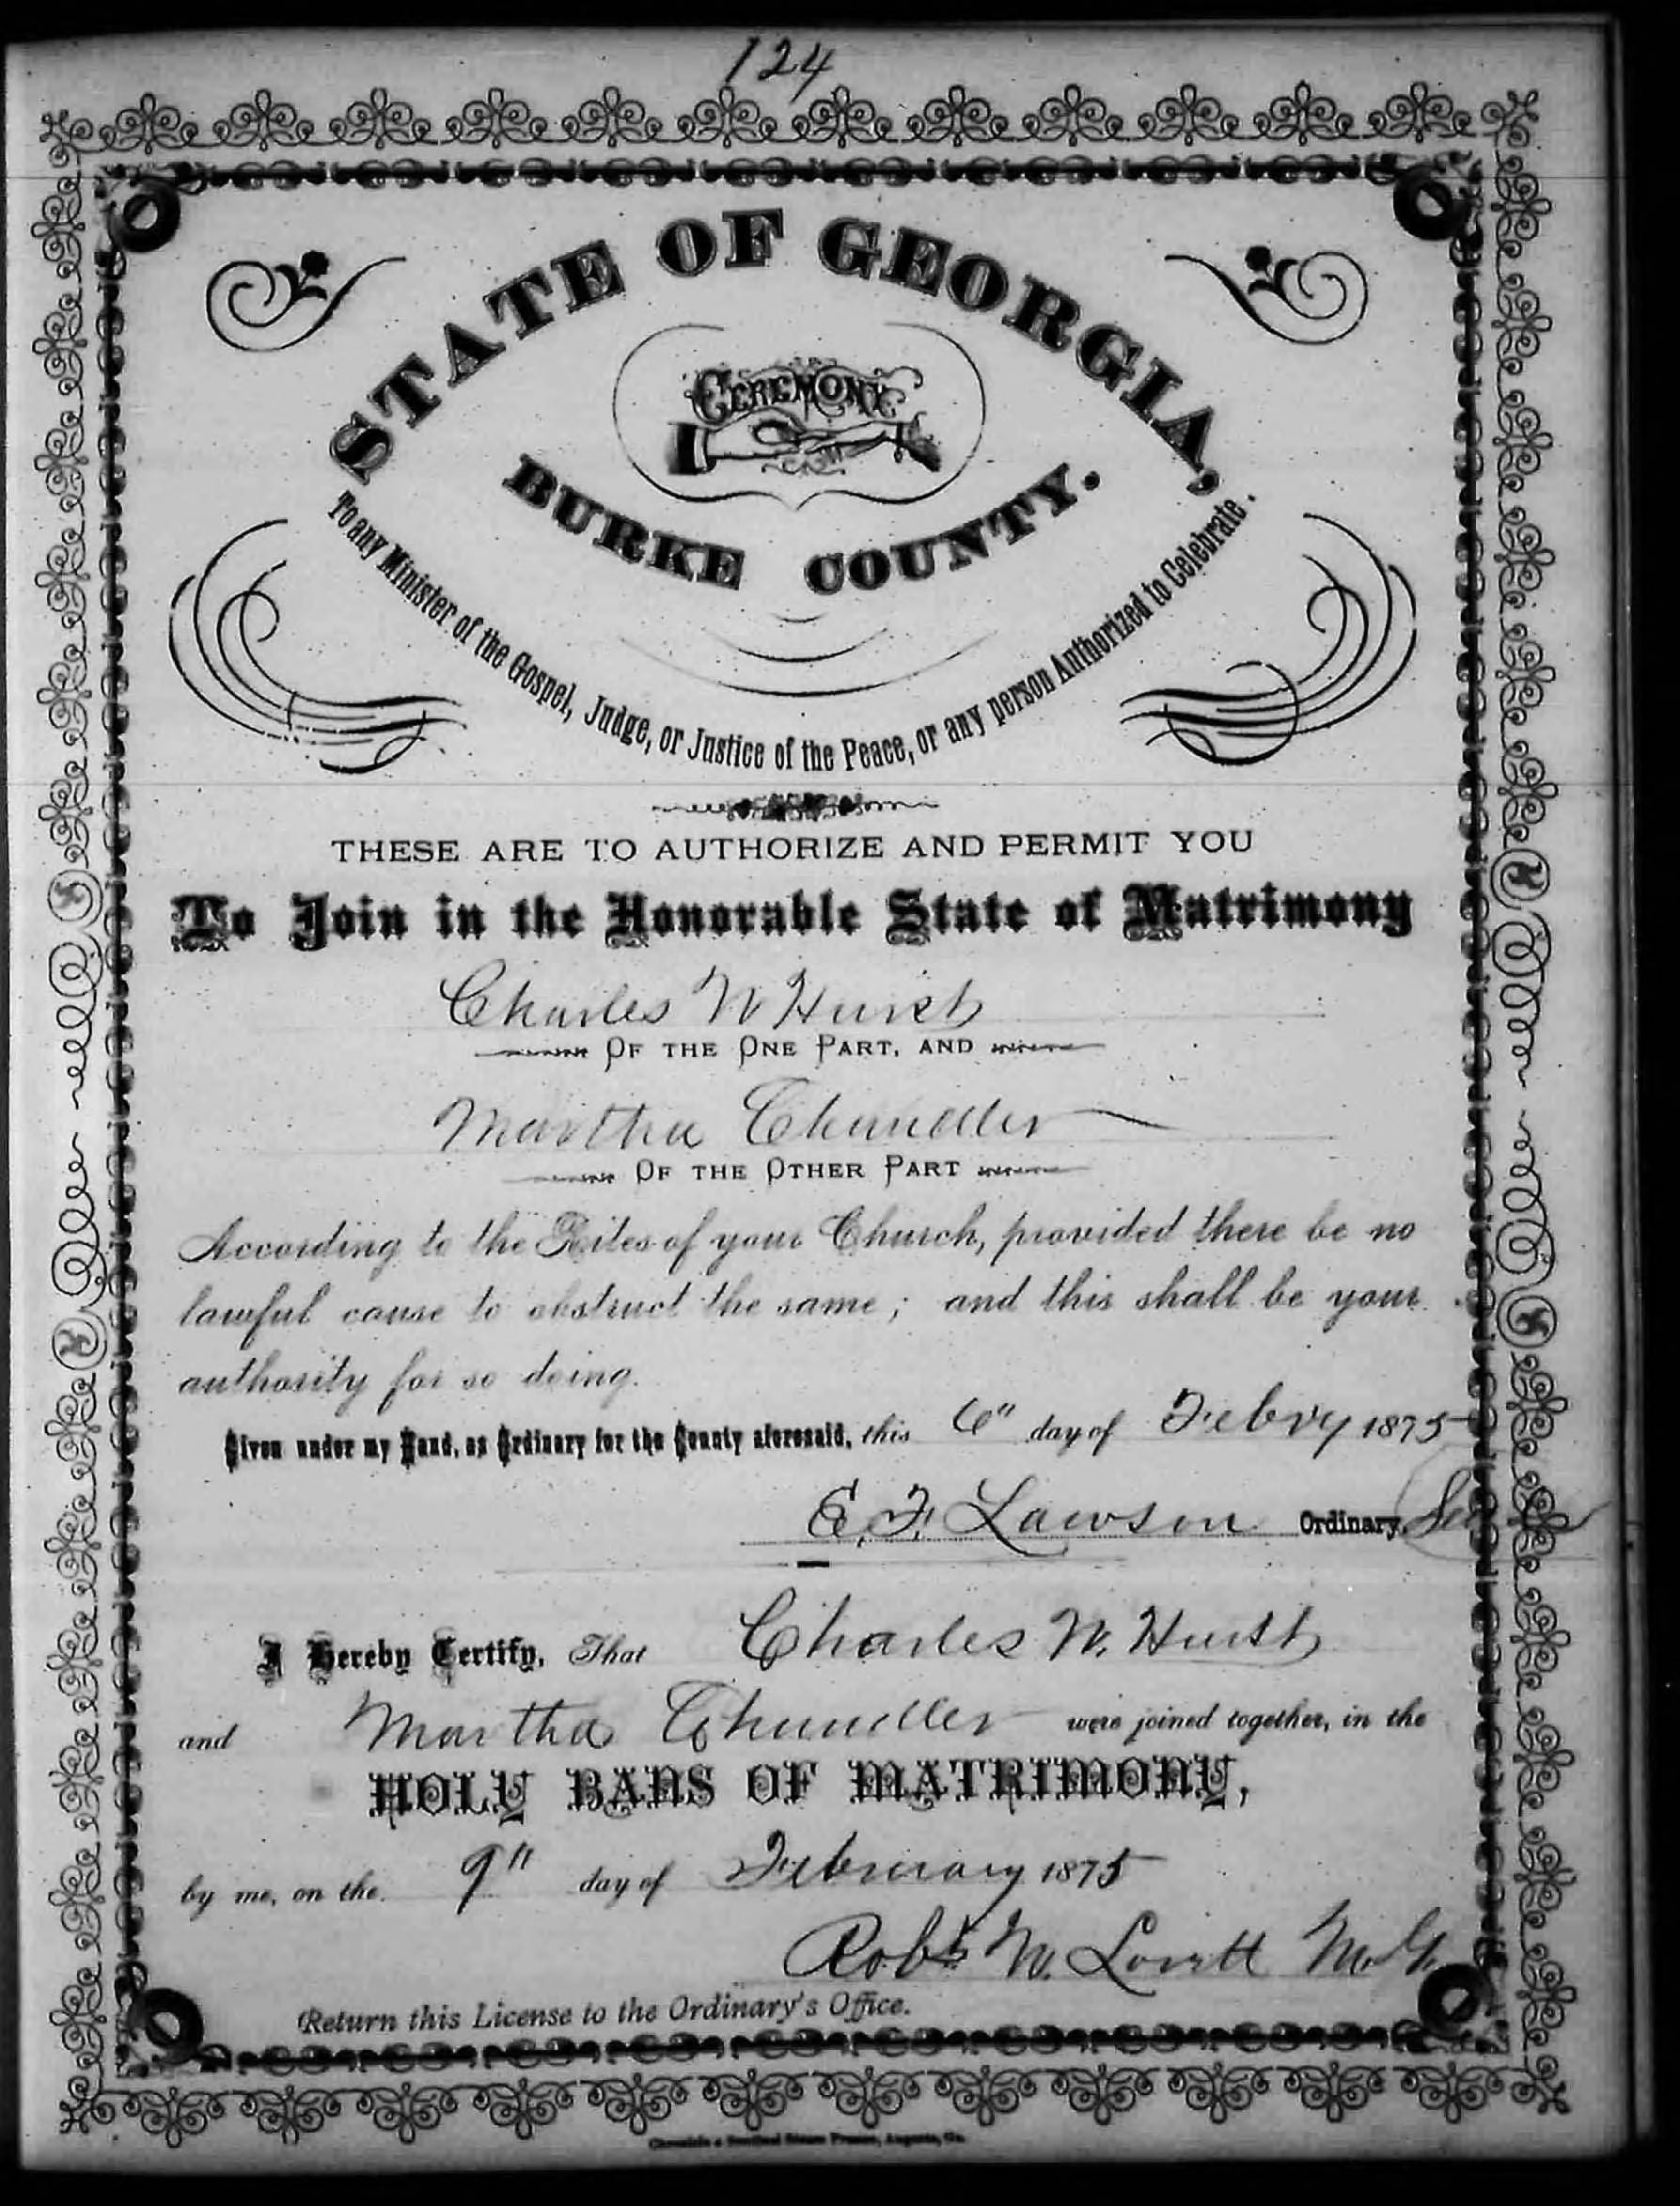 124
STATE OF GEORGIA,
CEREMONY
BURKE COUNTY.
To any Minister of the Gospel, Judge, or Justice of the Peace, or any person Authorized to Celebrate.
THESE ARE TO AUTHORIZE AND PERMIT YOU
To Join in the Honorable State of Matrimony
Charles W Hurst
OF THE ONE PART, AND
Martha Chandler
OF THE OTHER PART
According to the Rites of your Church, provided there be no
lawful cause to obstruct the same; and this shall be your
authority for so doing.
Given under my Hand, as Ordinary for the County aforesaid, this 6" day of Febry 1875
E. F. Lawson Ordinary.
I Hereby Certify, That Charles W. Hurst
and Martha Chandler were joined together, in the
HOLY BANS OF MATRIMONY,
by me, on the 9" day of February 1875
Robt W. Lovett M.G.
Return this License to the Ordinary's Office.
Chronicle & Sentinel Steam Presses, Augusta, Ga.